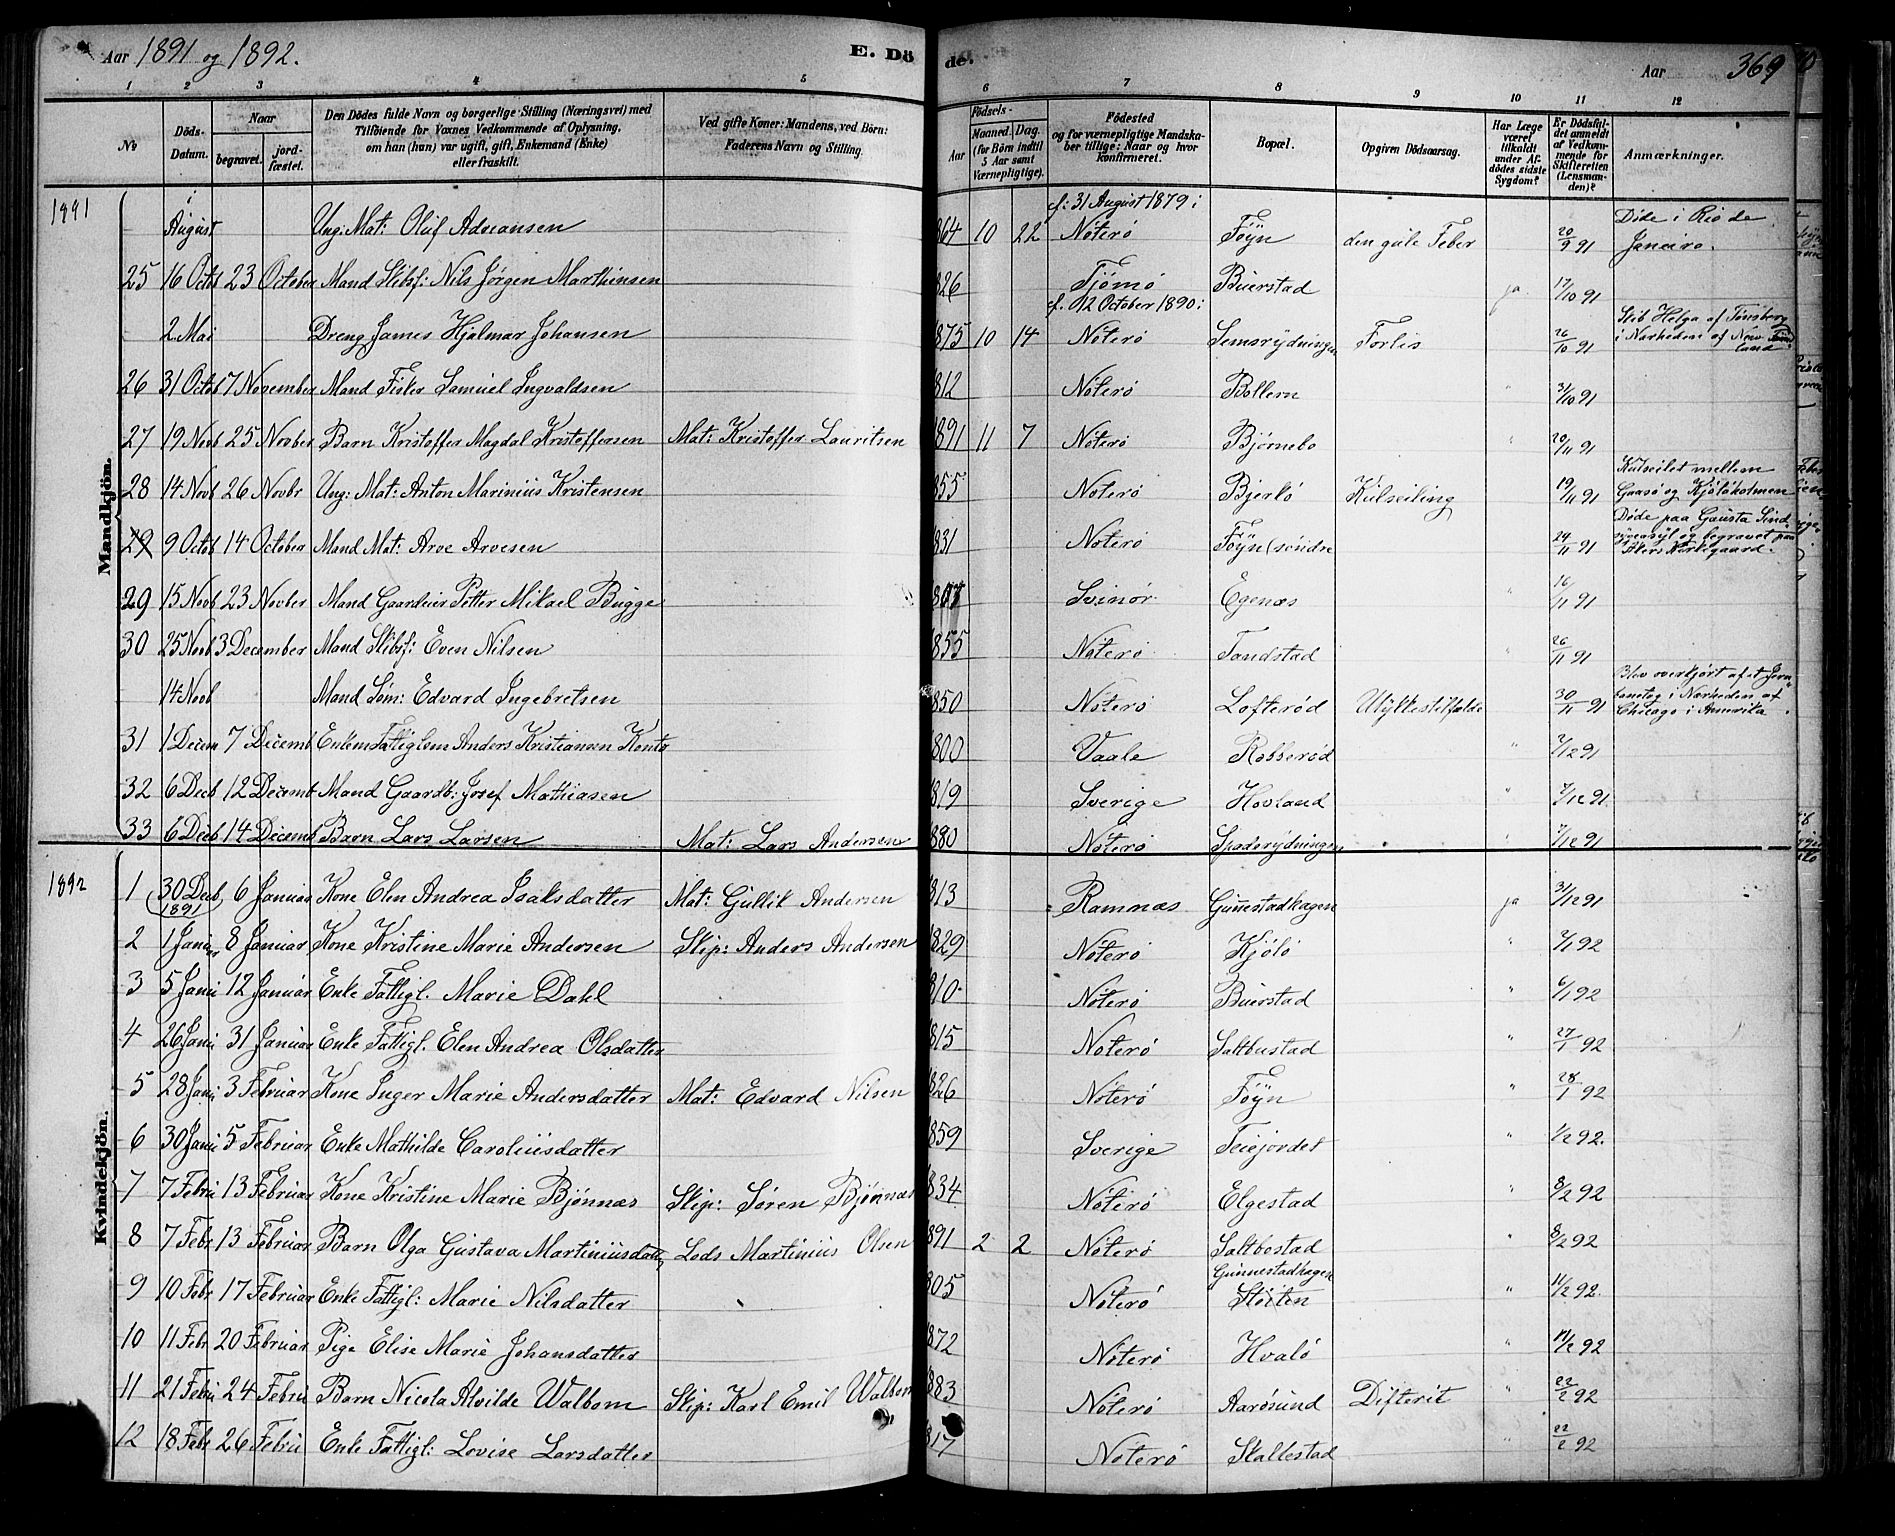 Aar 1891 og 1892. E. Dö de. Aar 369
1 2 3 4 5 6 7 8 9 10 11 12
No
Döds-Datum.
Naar begravet. jordfæstet.
Den Dödes fulde Navn og borgerlige Stilling (Næringsvei) med
Tilföiende for Voxnes Vedkommende af Oplysning,
om han (hun) var ugift, gift, Enkemand (Enke)
eller fraskilt.
Ved gifte Koner: Mandens, ved Börn:
Faderens Navn og Stilling.
Födsels-
Aar Maaned. Dag.
(for Börn indtil 5 Aar samt Værnepligtige).
Födested
og for værnepligtige Mandskaber tillige: Naar og hvor konfirmeret.
Bopæl.
Opgiven Dödsaarsag.
Har Læge været tilkaldt under Afdödes sidste Sygdom?
Er Dödsfaldet anmeldt af Vedkommende for Skifteretten (Lensmanden)?
Anmærkninger.
Mandkjön.
1891
August Ung: Mat: Oluf Adreansen 864 10 22 c. 31 August 1879: Nøterø Føyn den gule Feber 20/9 91 Døde i Rio de Janeiro.
25 16 Octob 23 October Mand Skibsf: Nils Jørgen Marthinsen 826 Tjømø Buerstad ja 17/10 91
2 Mai Dreng James Hjalmar Johansen 1875 10 14 c. 12 October 1890: Nøterø Semsrydningen Forlis 26/10 91 Skib Helga af Tønsberg i Nærheden af New Foundland
26 31 Octob 7 November Mand Fisker Samuel Ingvaldsen 1812 Nøterø Bollern " 31/10 91
27 19 Novb 25 Novber Barn Kristoffer Magdal Kristoffersen Mat: Kristoffer Lauritsen 1891 11 7 Nøterø Bjørnebo " 20/11 91
28 14 Novb 26 Novbr Ung: Mat: Anton Marinius Kristensen 855 Nøterø Bjerkø Kulseiling 19/11 91 Kulseilet mellem Gaasø og Kjøløholmen
29 9 Octob 14 October Mand Mat: Arve Arvesen 831 Nøterø Føyn (søndre 24/11 91 Døde paa Gausta Sindsygeasyl og begravet paa Akers Kirkegaard.
29 15 Novb 23 Novber Mand Gaardeier Petter Mikael Bugge Svinør Egenæs " 16/11 91
30 25 Novb 3 December Mand Skibsf: Even Nilsen 855 Nøterø Tandstad " 26/11 91
14 Novb Mand Søm: Edvard Ingebretsen 850 Nøterø Lofterød Ulykkestilfælde 30/11 91 Blev overkjørt af et Jernbanetog i Nærheden af Chicago i Amerika.
31 1 Decem 7 Decemb Enkem Fattiglem Anders Kristiansen Konto 800 Vaale Robberød " 2/12 91
32 6 Decb 12 Decemb Mand Gaardb: Josef Mathiasen 819 Sverige Hovland " 7/12 91
33 6 Decb 14 Decemb Barn Lars Larsen Mat: Lars Andersen 880 Nøterø Spaderydningen " 7/12 91
Kvindekjön.
1892
1 30 Decb 1891 6 Januar Kone Elen Andrea Isaksdatter Mat: Gullik Andersen 813 Ramnæs Gunnestadhagen ja 31/12 91
2 1 Janu 8 Januar Kone Kristine Marie Andersen Skip: Anders Andersen 1829 Nøterø Kjøllø " 2/1 92
3 5 Janu 12 Januar Enke Fattigl. Marie Dahl 810 Nøterø Buerstad " 6/1 92
4 26 Janu 31 Januar Enke Fattigl. Elen Andrea Olsdatter 815 Nøterø Saltbustad " 27/1 92
5 28 Janu 3 Februar Kone Inger Marie Andersdatter Mat: Edvard Nilsen 826 Nøterø Føyn " 28/1 92
6 30 Janu 5 Februar Enke Mathilde Caroliusdatter 859 Sverige Teiejordet " 1/2 92.
7 7 Febru 13 Februar Kone Kristine Marie Bjønnæs Skip: Søren Bjønnæs 834 Nøterø Elgestad " 8/2 92
8 7 Febr 13 Februar Barn Olga Gustava Martiniusdatter Lods Martinius Olsen 891 2 2 Nøterø Saltbostad " 8/2 92
9 10 Febr 17 Februar Enke Fattigl: Marie Nilsdatter 805 Nøterø Gunnestadhagen Støiten " 11/2 92.
10 11 Febr 20 Februar Pige Elise Marie Johansdatter 872 Nøterø Hvalø " 11/2 92
11 21 Febru 24 Febru Barn Nicola Alvilde Walbom Skip: Karl Emil Walbom 883 Nøterø Aarøsund Difterit " 22/2 92
12 18 Febr 26 Febru Enke Fattigl: Lovise Larsdatter 817 Nøterø Skallestad " 22/2 92